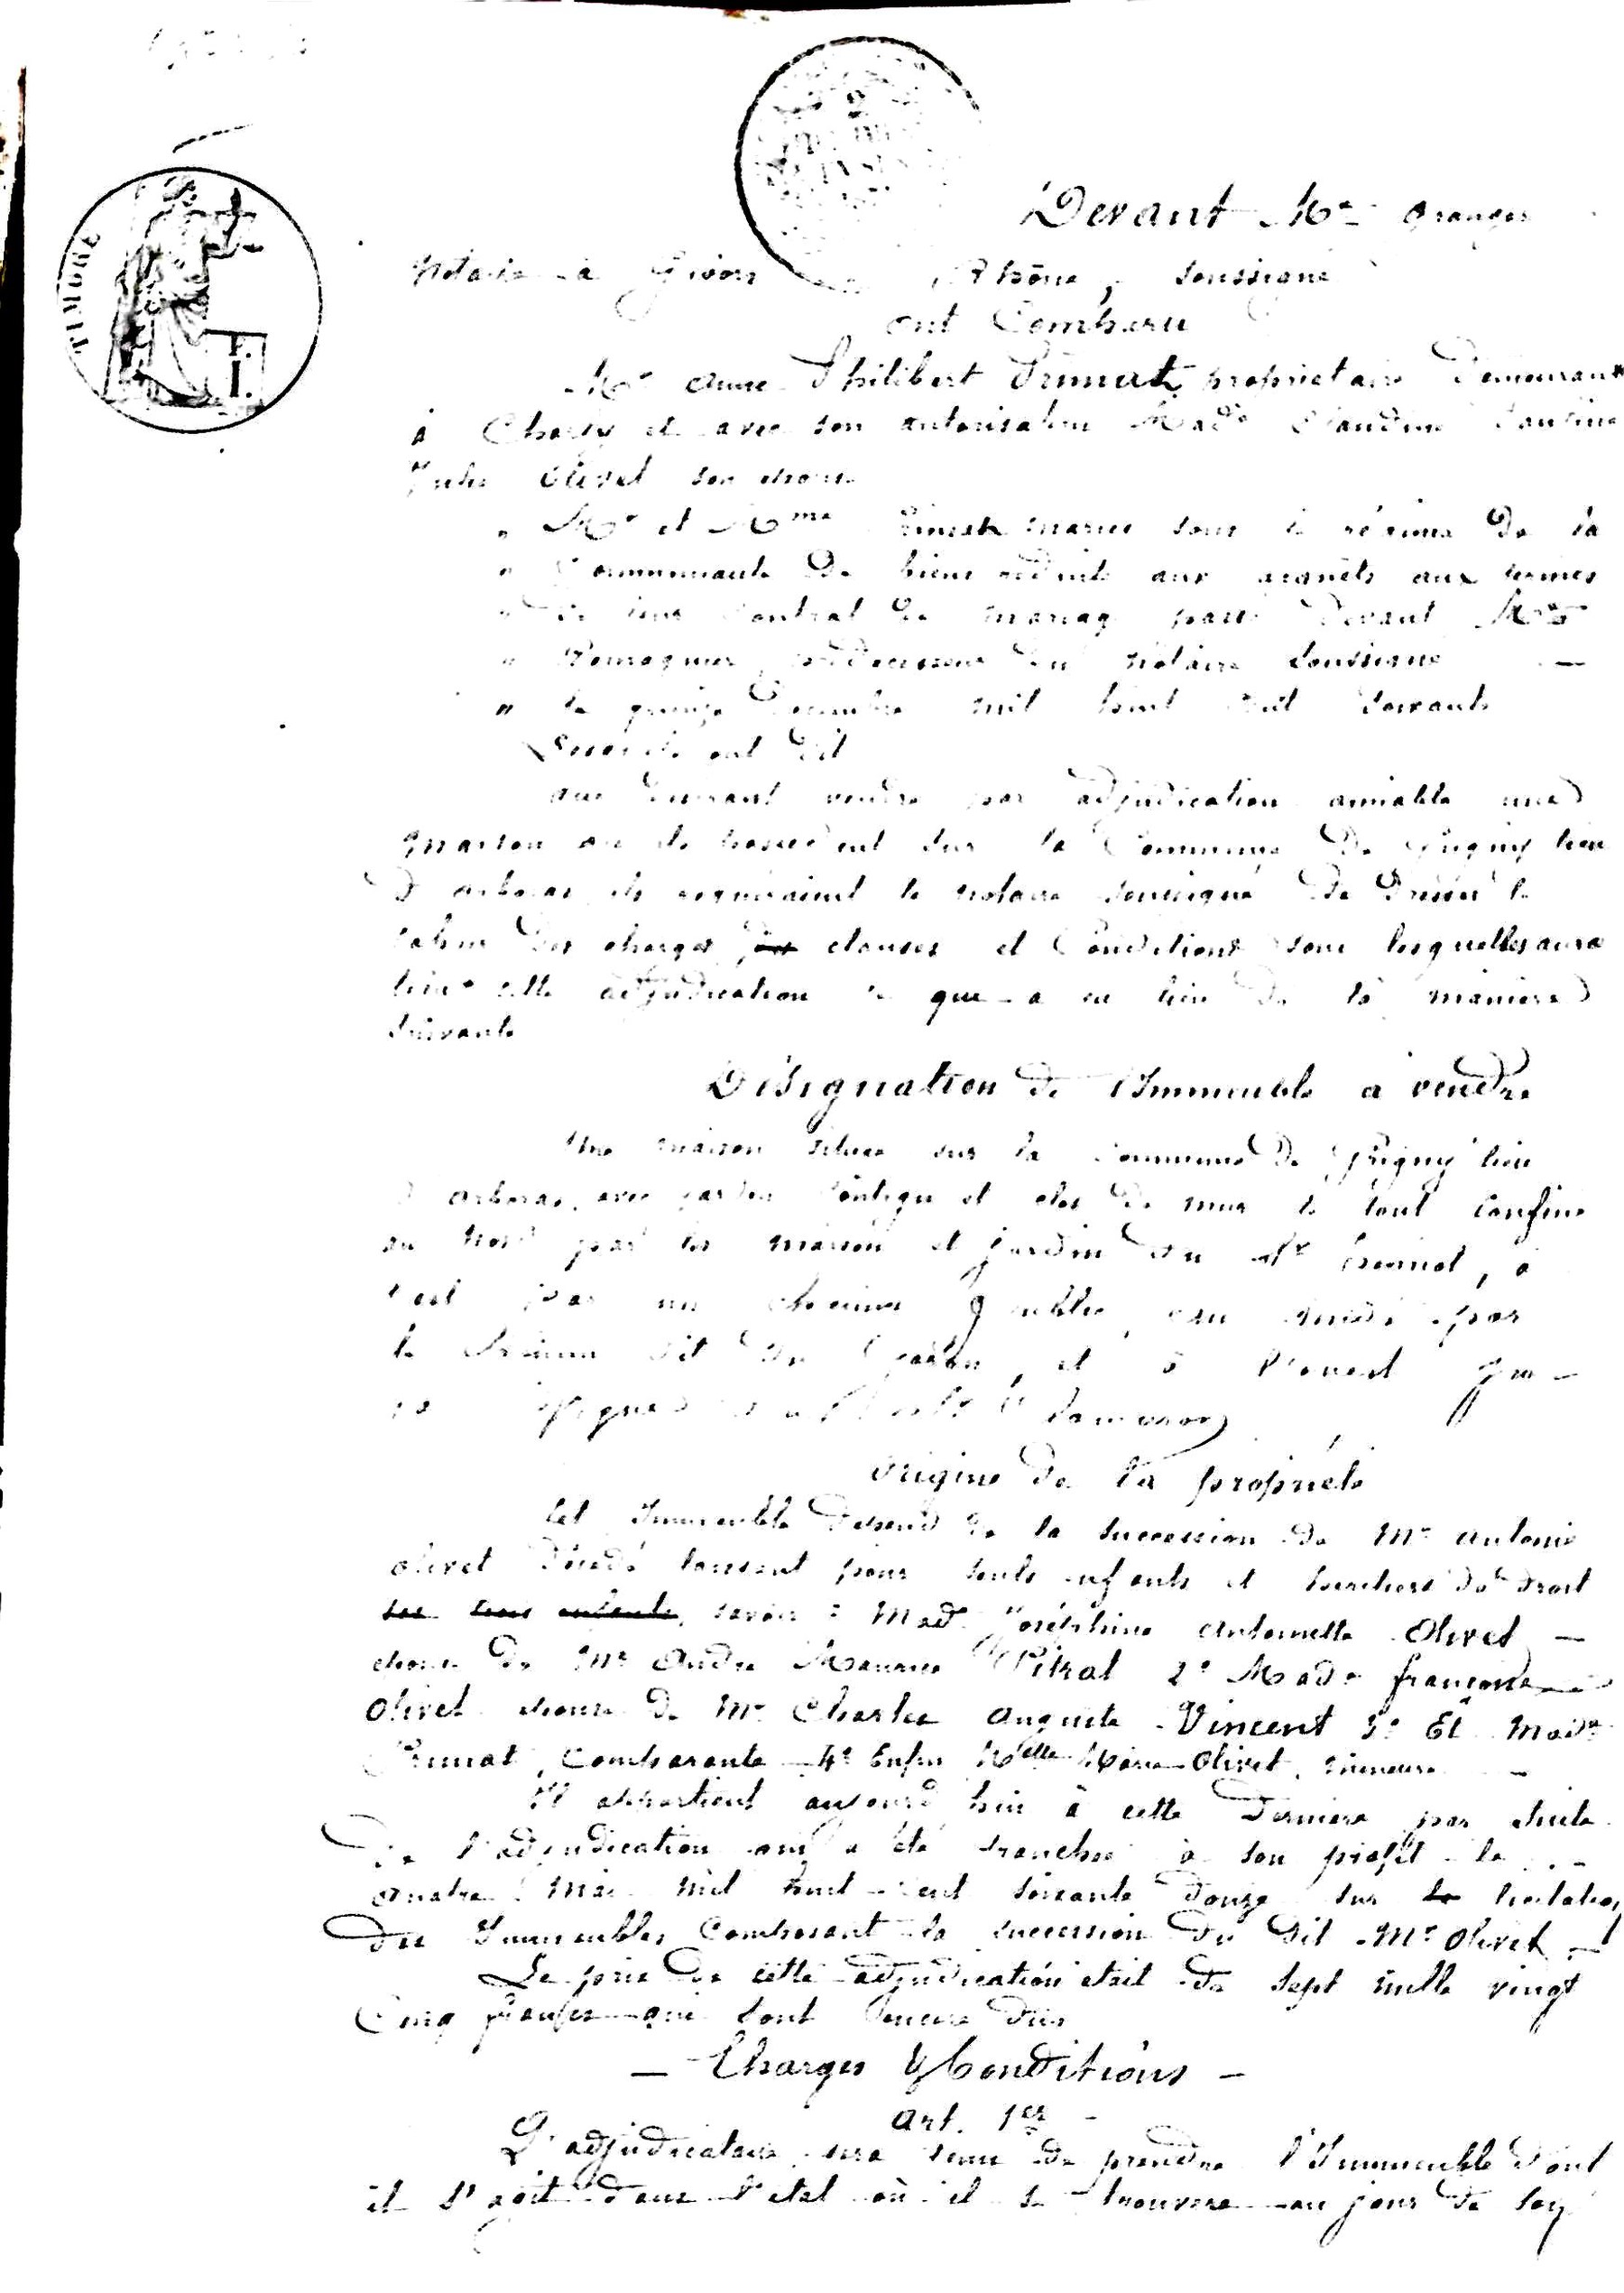 TIMBRE
Devant Me Oranger
Notaire à Givors Rhône, soussigné
ont Comparu
Mr Anne Philibert Primat, propriétaire demeurant
à Charly et avec son autorisation Made Claudine
Julie Olivet son épouse
" Mr et Mme Primat mariés sous le régime de la
" Communauté de biens réduite aux acquêts aux termes
" de leur Contrat de mariage passé devant Me
" prédécesseur du notaire soussigné —
" le quinze Décembre mil huit cent soixante
Lesquels ont dit
que désirant vendre par adjudication amiable une
maison qu'ils possèdent sur la Commune de Grigny lieu
d'arboras ils requéraient le notaire soussigné de dresser le
cahier des charges des clauses et Conditions sous lesquelles aura
lieu cette adjudication ce qui a eu lieu de la manière
suivante
Désignation de l'Immeuble à vendre
Une maison située sur la Commune de Grigny lieu
d'arboras, avec jardin Contigu et clos de murs le tout Confiné
au nord par les maison et jardin du Sr , à
l'est par un chemin public, au midi par
le chemin dit du , et à l'ouest par
la
Origine de la propriété
Cet Immeuble dépend de la succession de Mr Antoine
Olivet décédé laissant pour seuls enfants et héritiers de droit
ses trois enfants, savoir : Made Joséphine Antoinette Olivet —
épouse de Mr André Maurice Pitrat 2° Made françoise
Olivet épouse de Mr Charles Auguste Vincent 3° Et Made
Primat, Comparante 4° Enfin Melle Marie Olivet, mineure —
Il appartient aujourd'hui à cette dernière par suite
de l'adjudication qui a été tranchée à son profit le
quatre Mai mil huit cent soixante douze sur la licitation
des Immeubles Composant la succession du dit Mr Olivet —
Le prix de cette adjudication était de sept mille vingt
Cinq francs qui sont encore dûs
— Charges & Conditions —
Art. 1er
L'adjudicataire sera tenu de prendre l'Immeuble dont
il s'agit dans l'état où il se trouvera au jour de son